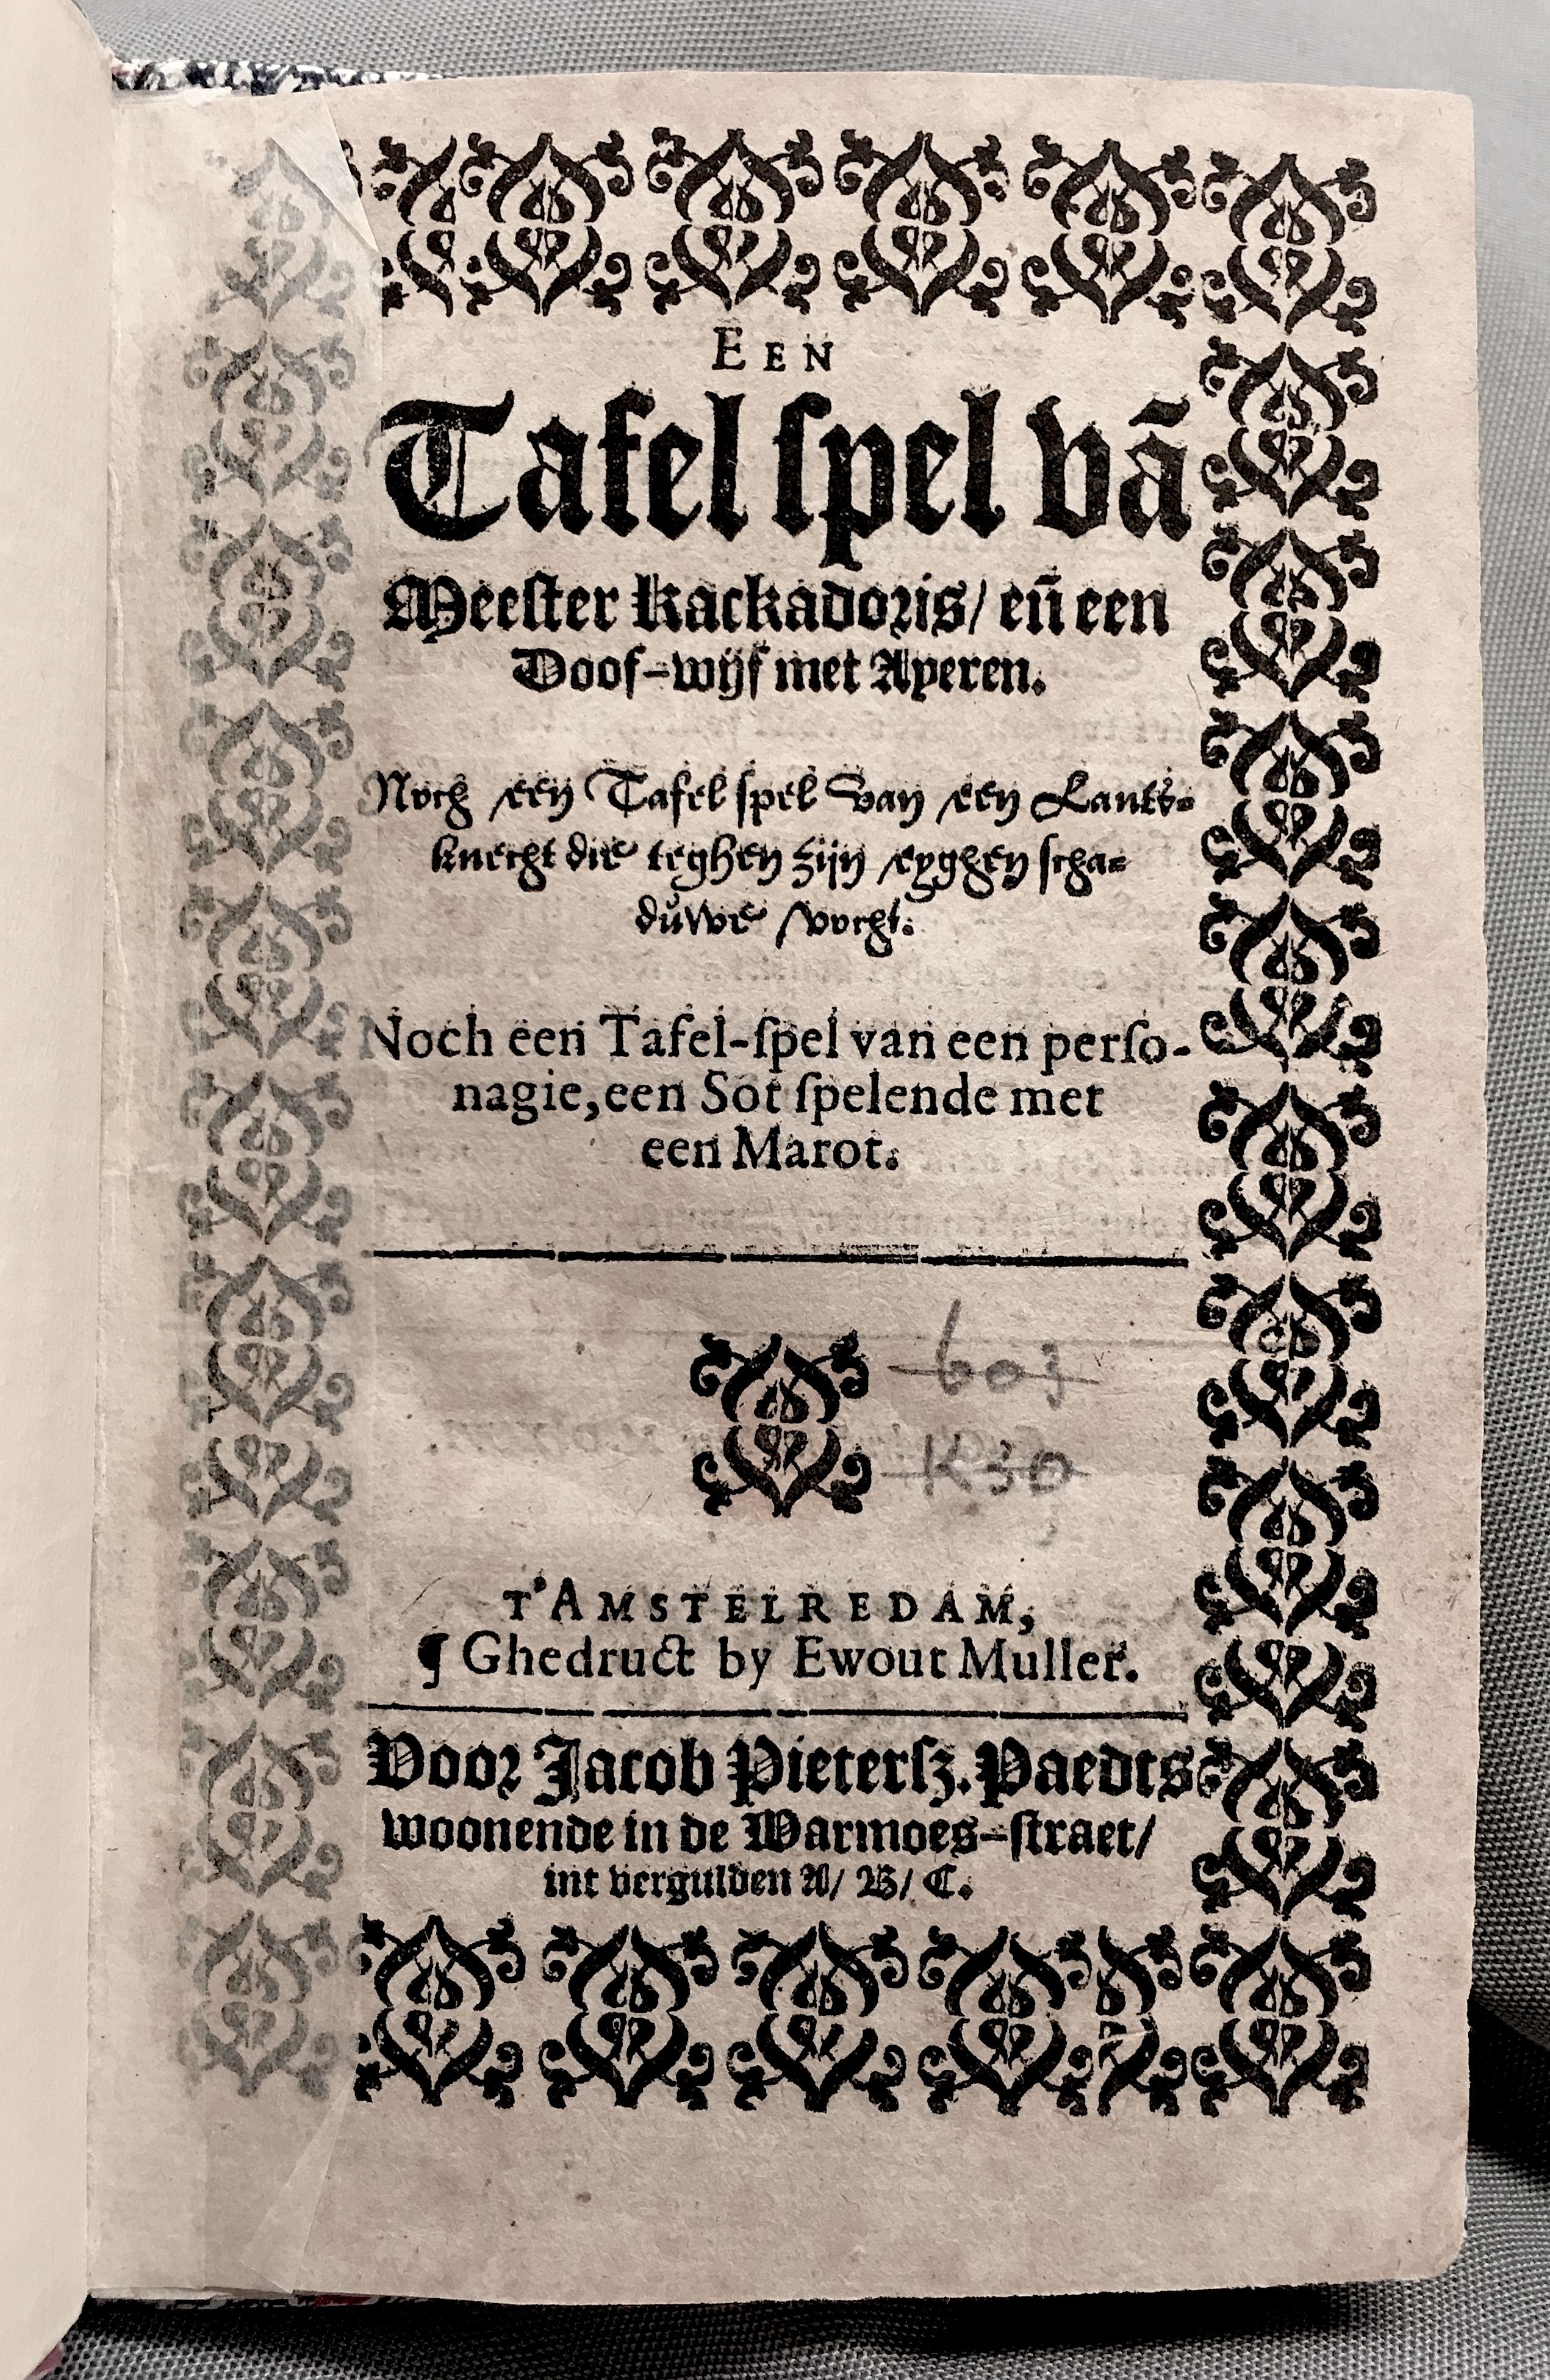 EEN
Tafel ſpel vā
Meeſter Kackadoris/ en̄ een
Doof-wijf met Ayeren.
Noch een Tafel ſpel van een Lants-
knecht die teghen zijn eyghen ſcha-
duwe vocht.
Noch een Tafel-ſpel van een perſo-
nagie, een Sot ſpelende met
een Marot.
603
K30
T'AMSTELREDAM,
¶ Ghedruct by Ewout Muller.
Voor Jacob Pieterſz. Paedts
woonende in de Warmoes-ſtraet/
int vergulden A/ B/ C.